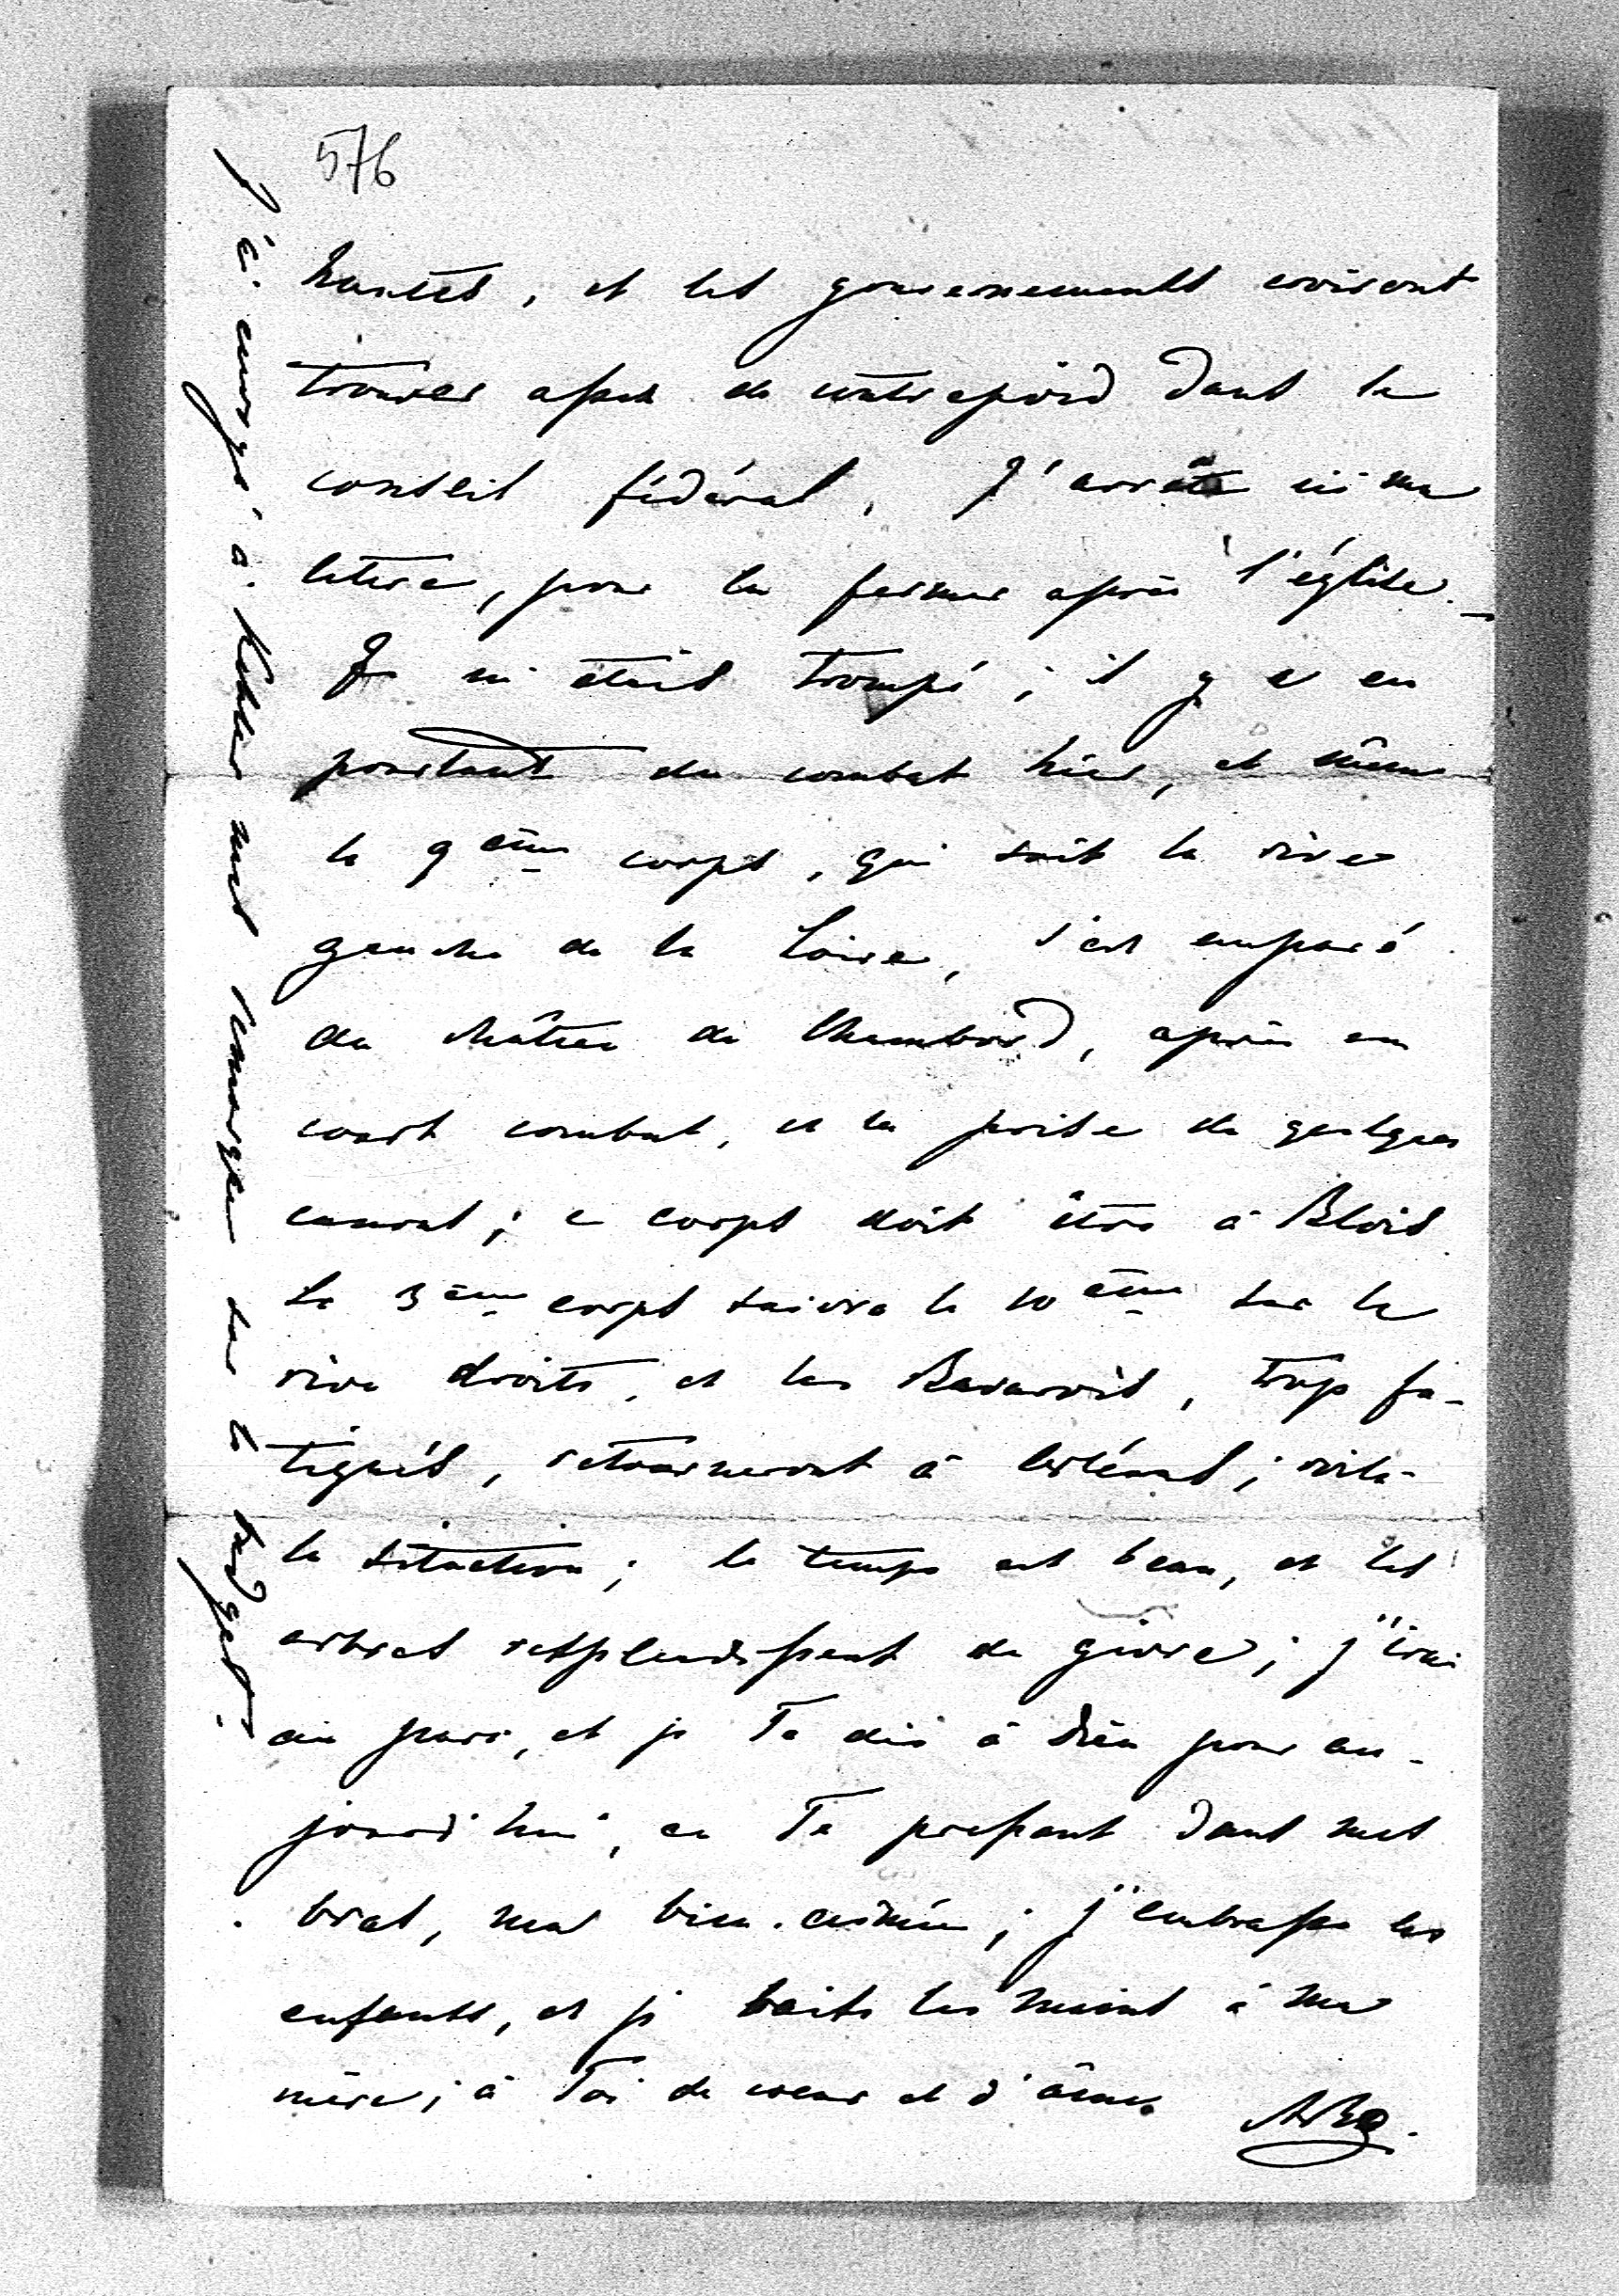 576
hautes, et les gouvernements croiront
trouver assez de contrepoid dans le
conseil fédéral. J'arrête ici ma
lettre, pour la fermer après l'église. _
Je m'étais trompé ; il y a eu
pourtant du combat hier, et même
le 9ème corps, qui suit la rive
gauche de la Loire, s'est emparé
du château de Chambord, après un
court combat, et la prise de quelques
canons ; ce corps doit être à Blois.
Le 3ème corps suivra le 10ème sur la
rive droite, et les Bavarois, trop fa-
tigués, retourneront à Orléans ; voilà
la situation ; le temps est beau, et les
arbres resplendissent de givre ; j'irai
au parc, et je Te dis à Dieu pour au-
jourd'hui, en Te pressant dans mes
bras, ma bien-aimée ; j'embrasse les
enfants, et je baise les mains à ma
mère ; à Toi de coeur et d'âme.
J'ai envoyé à Kübler mes remarques sur le budget.